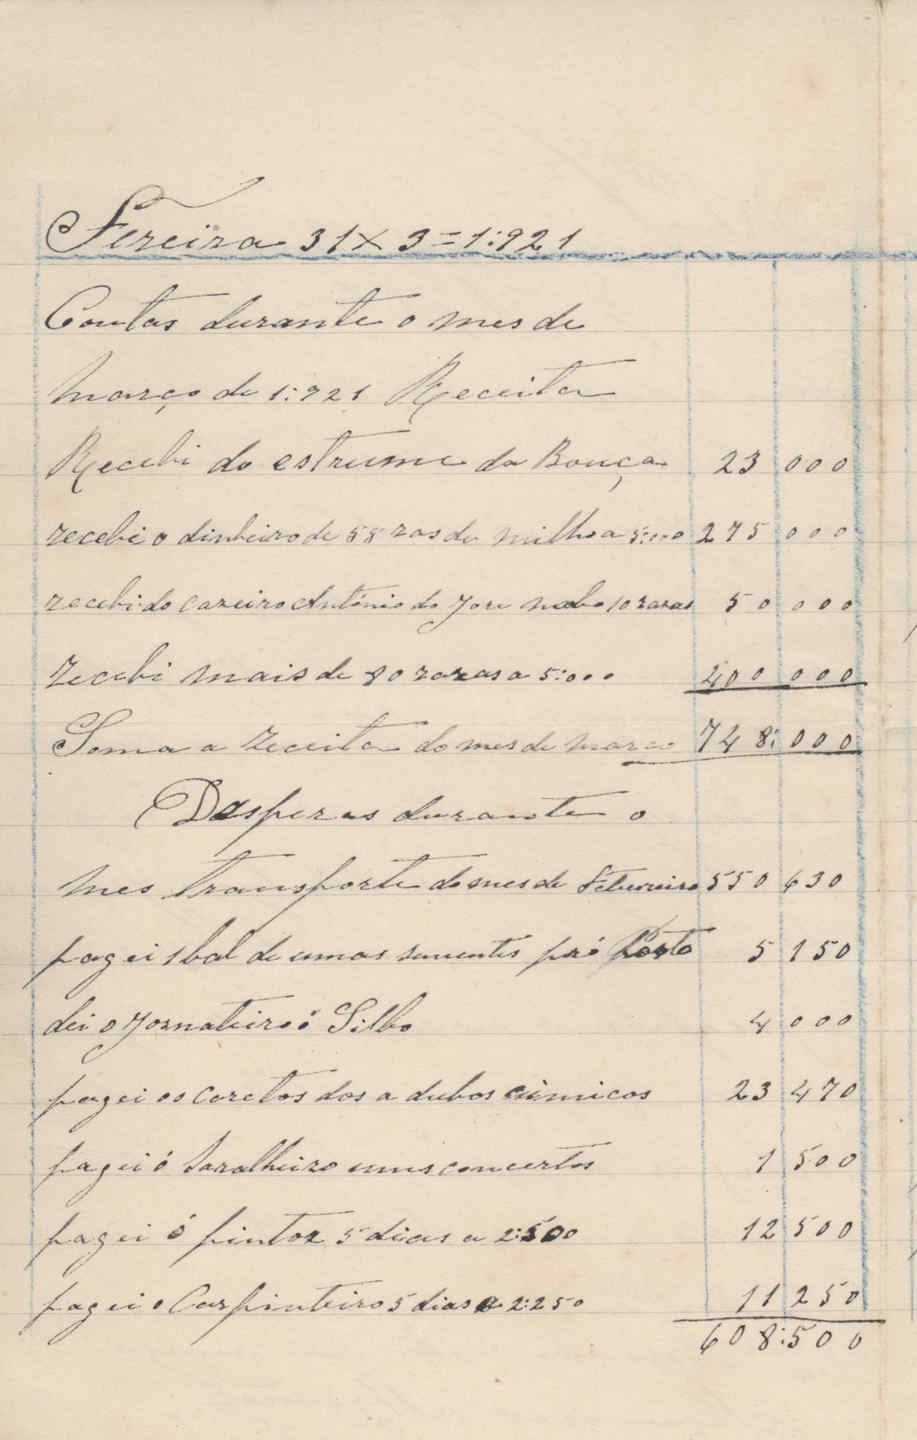 Fereira 31 X 3 = 1:921
Contas durante o mes de
março de 1:921 Receita
Recebi do estrume da Bouça 23 000
recebi o dinheiro de 55 ras de milho a 5:000 275 000
recebi do cazeiro António do Jose nabo 10 razas 50 000
recebi mais de 80 razas a 5:000 400 000
Soma a receita do mes de março 748: 000
Despezas durante o
mes transporte do mes de Febureiro 550 630
pagei 1 bal de umas sementes pró Porto 5 150
dei o jornaleiro ó Silbo 4 000
pagei os caretos dos adubos cimicos 23 470
pagei ó saralheiro unus concertos 1 500
pagei ó pintor 5 dias a 2:500 12 500
pagei o Carpinteiro 5 dias a 2:250 11 250
608:500